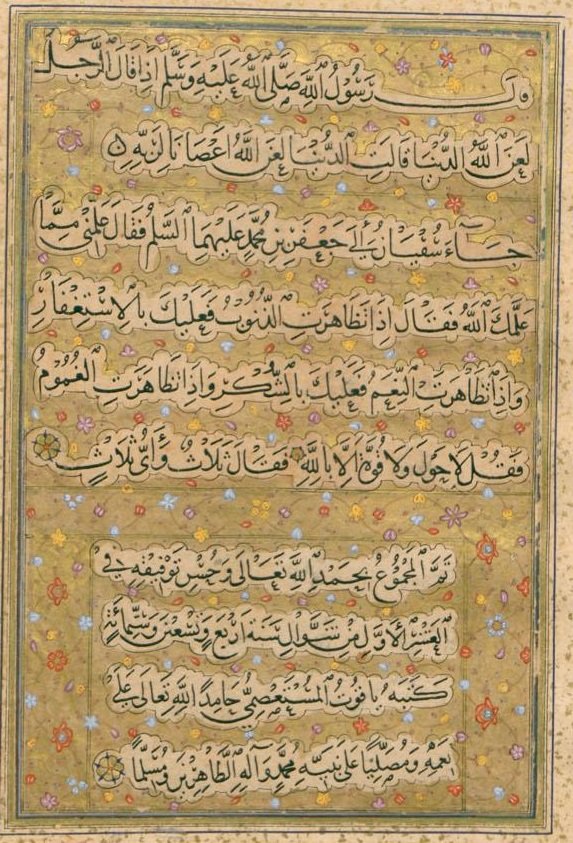 وَقَالَ رَسُولُ اللهِ صَلَّى اللهُ عَلَيْهِ وَسَلَّمَ اِذَا قَالَ الرَّجُلُ
لَعَنَ اللهُ الدُّنْيَا قَالَتِ الدُّنْيَا لَعَنَ اللهُ اَعْصَانَا لِرَبِّهِ ٥
جَاءَ سُفْيَانُ اِلَى جَعْفَرِ بْنِ مُحَمَّدٍ عَلَيْهِمَا السَّلَمُ فَقَالَ عَلِّمْنِي مِمَّا
عَلَّمَكَ اللهُ فَقَالَ اِذَا تَظَاهَرَتِ الذُّنُوبُ فَعَلَيْكَ بِالْاِسْتِغْفَارِ
وَاِذَا تَظَاهَرَتِ النِّعَمُ فَعَلَيْكَ بِالشُّكْرِ وَاِذَا تَظَاهَرَتِ الْغُمُومُ
فَقُلْ لَا حَوْلَ وَلَا قُوَّةَ اِلَّا بِاللهِ فَقَالَ ثَلَاثٌ وَأَيُّ ثَلَاثٍ
تَمَّ الْمَجْمُوعُ بِحَمْدِ اللهِ تَعَالَى وَحُسْنِ تَوْفِيقِهِ فِي
الْعَشْرِ الْاَوَّلِ مِنْ شَوَّالِ سَنَةَ اَرْبَعٍ وَتِسْعِينَ وَسِتِّمِائَةٍ
كَتَبَهُ يَاقُوتُ الْمُسْتَعْصِمِيُّ حَامِدًا لِلَّهِ تَعَالَى عَلَى
نِعَمِهِ وَمُصَلِّيًا عَلَى نَبِيِّهِ مُحَمَّدٍ وَآلِهِ الطَّاهِرِينَ وَمُسَلِّمًا